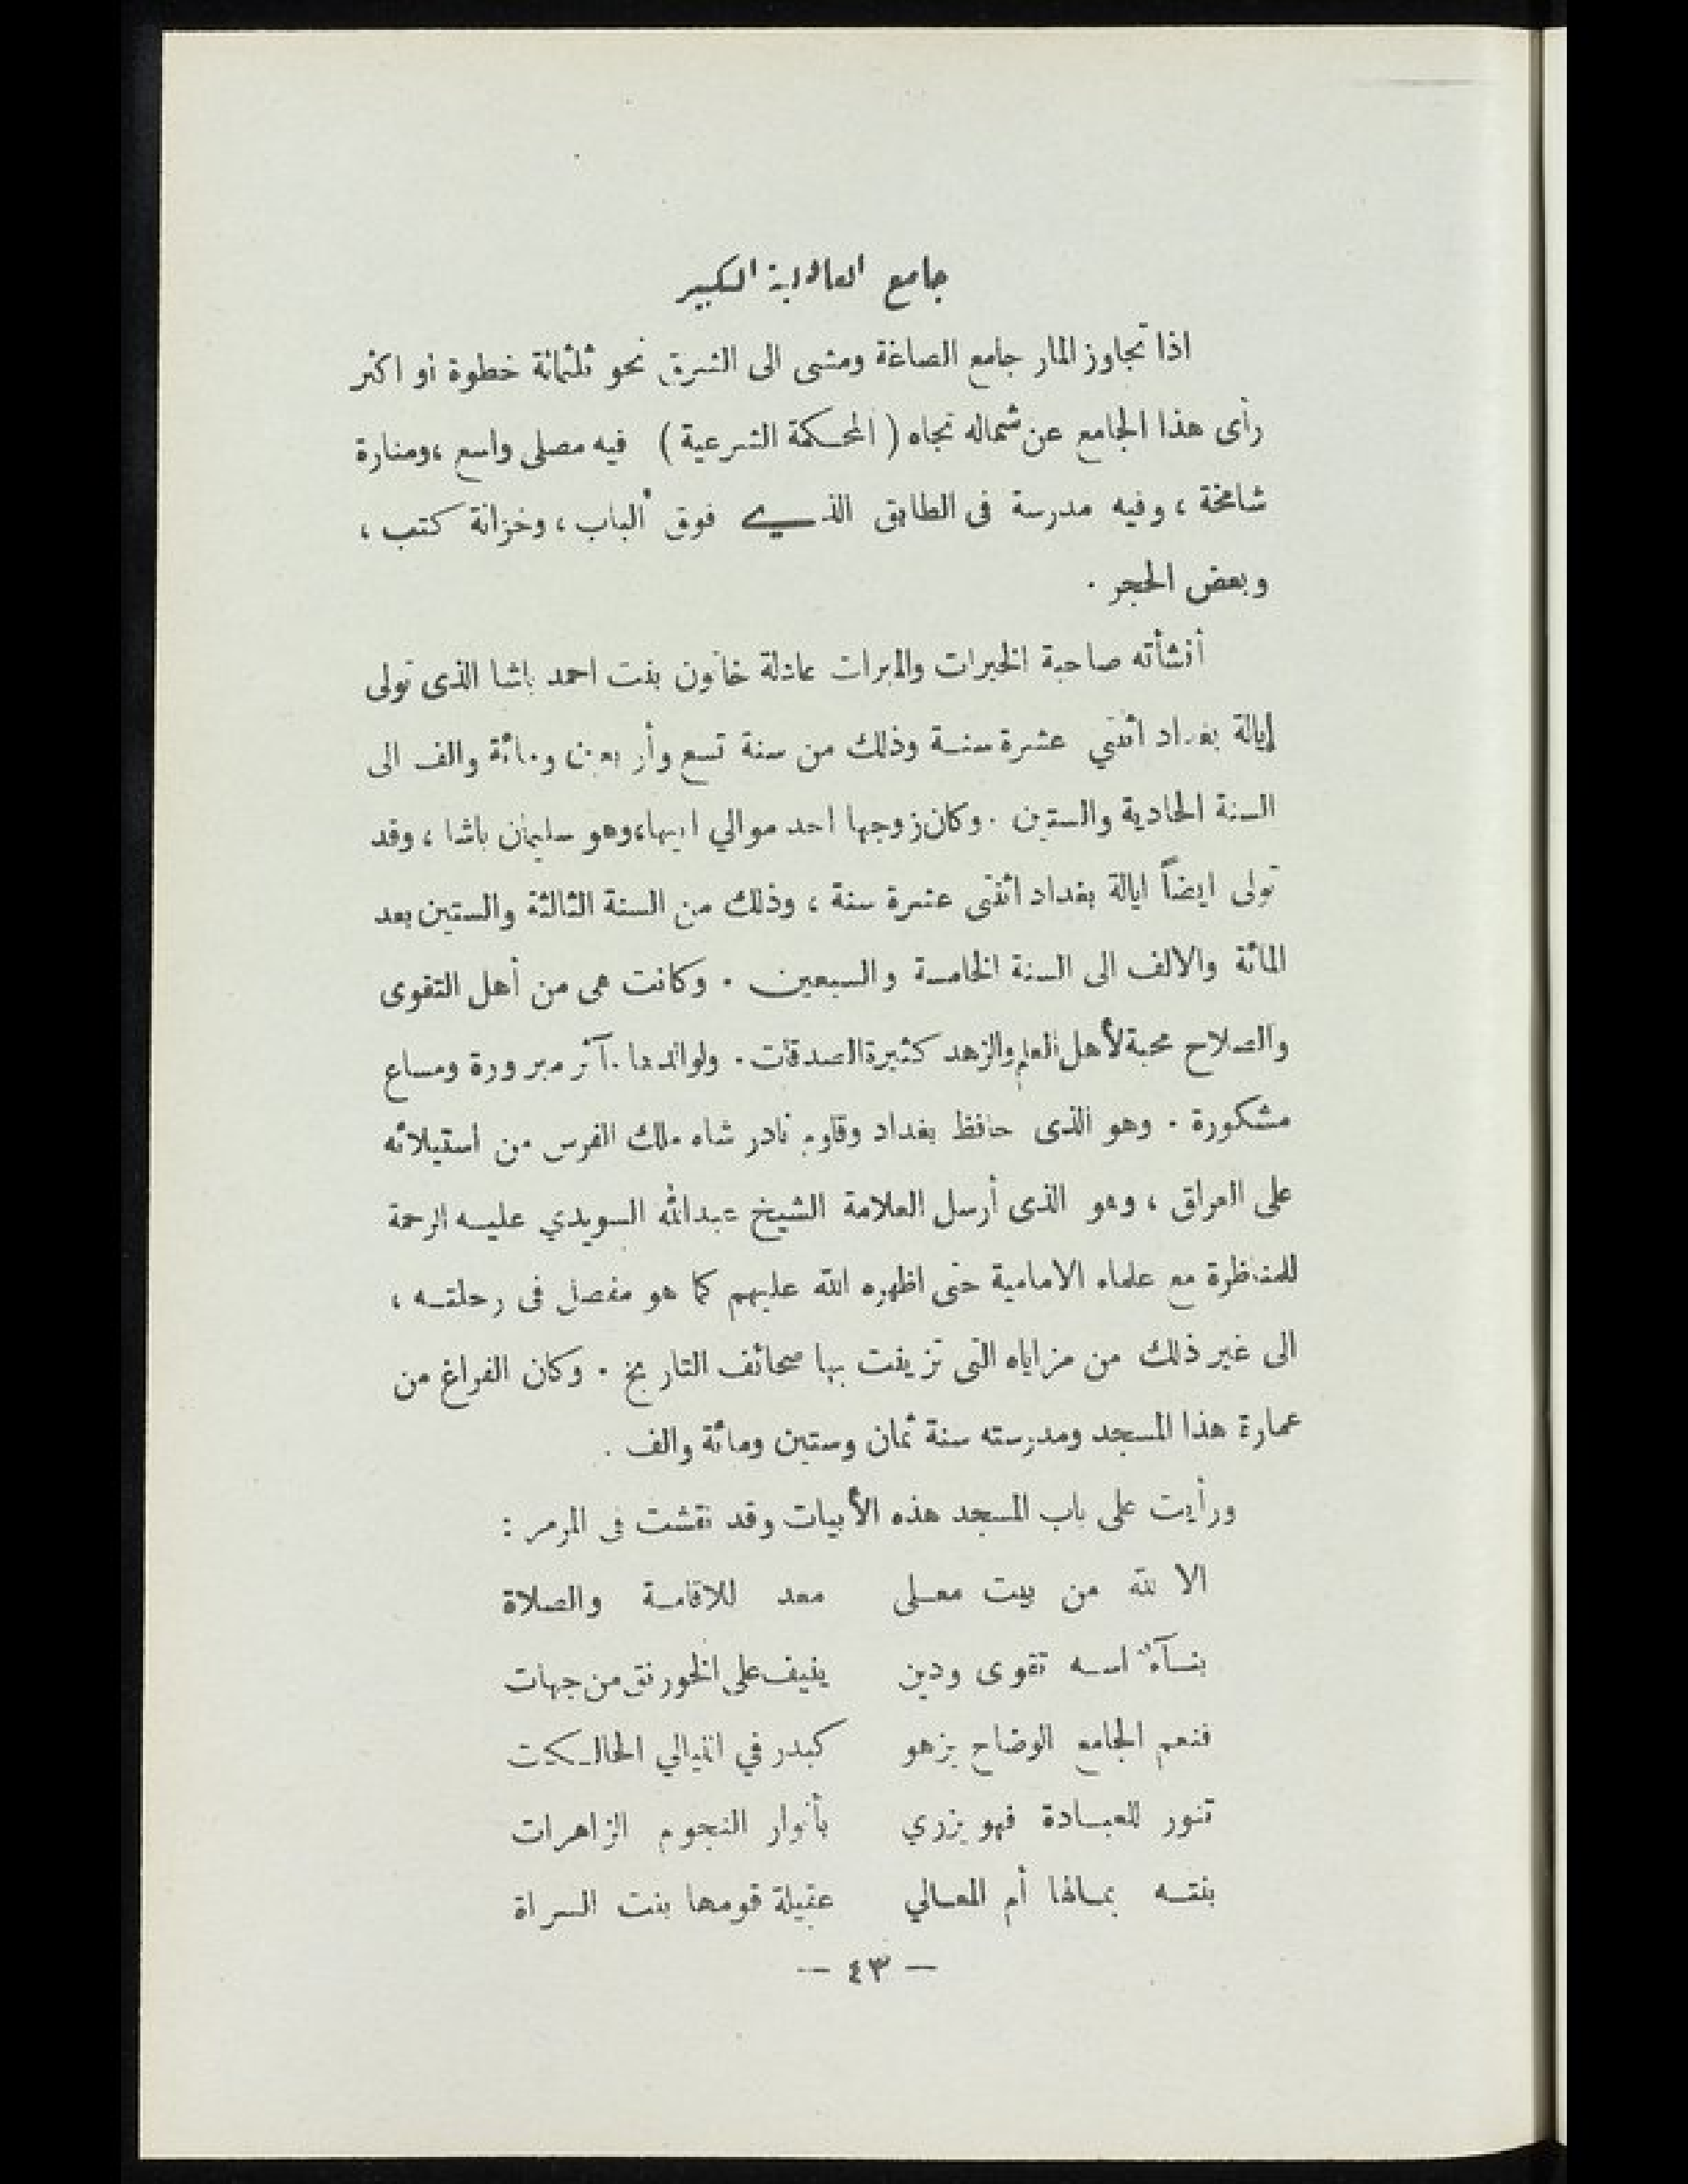 جامع العادلية الكبير
اذا تجاوز المار جامع الصاغة ومشى الى الشرق نحو ثلثمائة خطوة أو اكثر
رأى هذا الجامع عن شماله تجاه ( المحكمة الشرعية ) فيه مصلى واسع ، ومنارة
شامخة ، وفيه مدرسة فى الطابق الذي فوق الباب ، وخزانة كتب ،
وبعض الحجر .
أنشأته صاحبة الخيرات والمبرات عادلة خاتون بنت احمد باشا الذى تولى
إيالة بغداد اثنتي عشرة سنة وذلك من سنة تسع وأربعين ومائة والف الى
السنة الحادية والستين . وكان زوجها احد موالي ابيها ، وهو سليمان باشا ، وقد
تولى ايضاً ايالة بغداد اثنتى عشرة سنة ، وذلك من السنة الثالثة والستين بعد
المائة والالف الى السنة الخامسة والسبعين . وكانت هى من أهل التقوى
والصلاح محبة لأهل العلم والزهد كثيرة الصدقات . ولوالدها مآثر مبرورة ومساع
مشكورة . وهو الذى حافظ بغداد وقاوم نادر شاه ملك الفرس من استيلائه
على العراق ، وهو الذى أرسل العلامة الشيخ عبدالله السويدي عليه الرحمة
للمناظرة مع علماء الامامية حتى اظهره الله عليهم كما هو مفصل فى رحلته ،
الى غير ذلك من مزاياه التى تزينت بها صحائف التاريخ . وكان الفراغ من
عمارة هذا المسجد ومدرسته سنة ثمان وستين ومائة والف .
ورأيت على باب المسجد هذه الأبيات وقد نقشت فى المرمر :
الا لله من بيت معلى معد للاقامة والصلاة
بنآء اسه تقوى ودين ينيف على الخورنق من جهات
فنعم الجامع الوضاح يزهو كبدر في الليالي الحالكت
تنور للعبادة فهو يزري بأنوار النجوم الزاهرات
بنته بمالها أم المعالي عقيلة قومها بنت السراة
— ٤٣ —